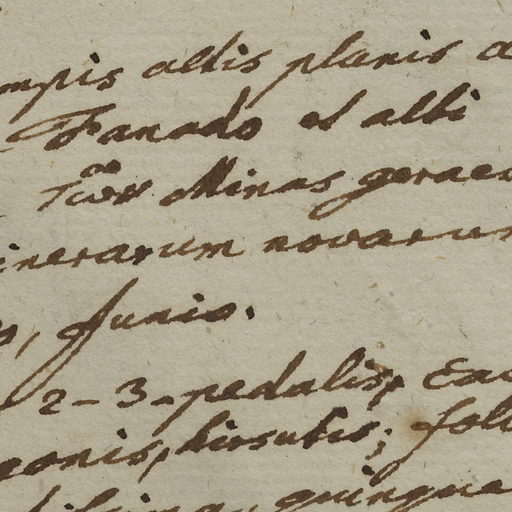 mpis altis planis a
Fanado et alibi
Minas geraes
inerarum novarum
, Junio.
2-3-pedalis,
gonis, hirsutis; foli
quinque